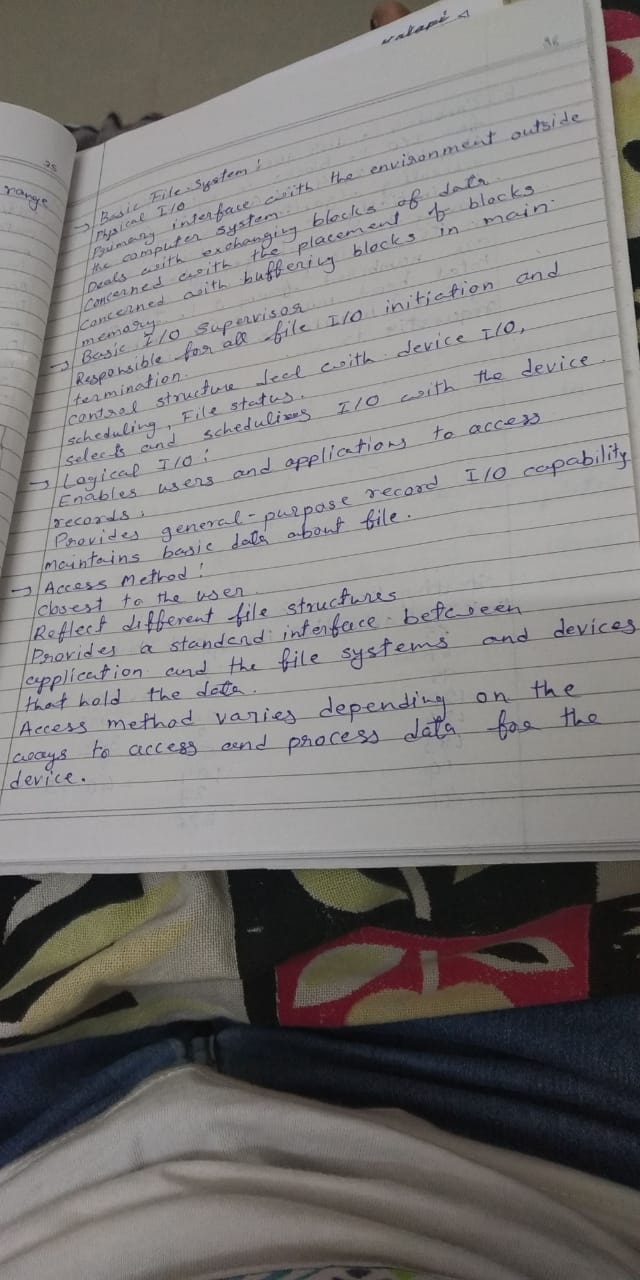 26
→ Basic File System :
Physical I/O
Primary interface with the environment outside
the computer system.
Deals with exchanging blocks of data
Concerned with the placement of blocks
Concerned with buffering blocks in main
memory.
→ Basic I/O Supervisor
Responsible for all file I/O initiation and
termination.
control structure deal with device I/O,
scheduling, File status.
selects and schedulines I/O with the device.
→ Logical I/O :
Enables users and applications to access
records.
Provides general-purpose record I/O capability
maintains basic data about file.
→ Access Method :
closest to the user
Reflect different file structures
Provides a standard interface between
application and the file systems and devices
that hold the data.
Access method varies depending on the
ways to access and process data for the
device.
range